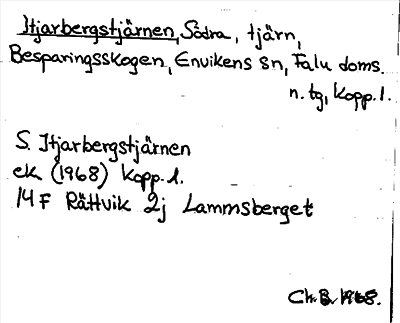 Itjarbergstjärnen, Södra, tjärn,
Besparingsskogen, Envikens sn, Falu doms.
n. tg, Kopp. l.
S. Itjarbergstjärnen
ek (1968) Kopp. l.
14 F Rättvik 2j Lammsberget
Ch. B. 1968.